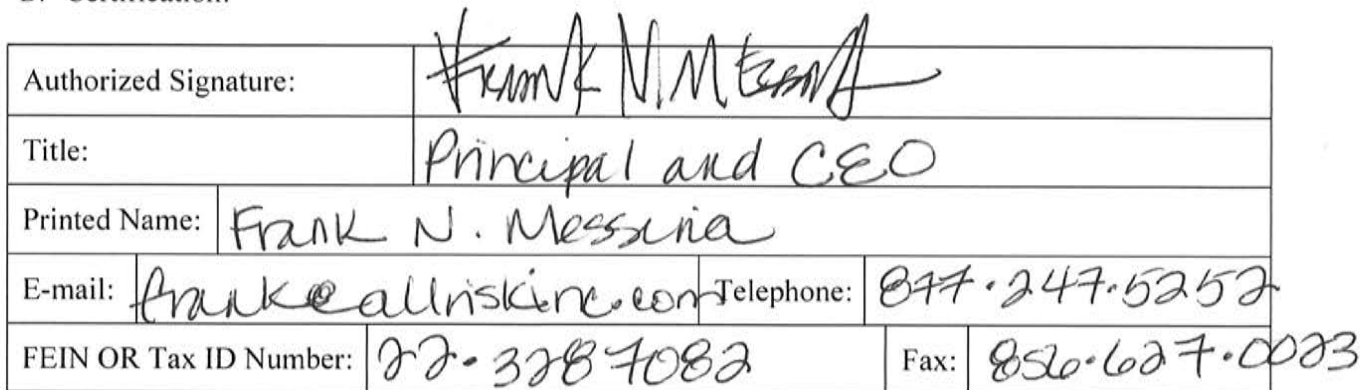 Authorized Signature: Frank N Messina
Title: Principal and CEO
Printed Name: Frank N. Messina
E-mail: frank@allriskinc.com Telephone: 877.247.5252
FEIN OR Tax ID Number: 22.3287082 Fax: 856.627.0023